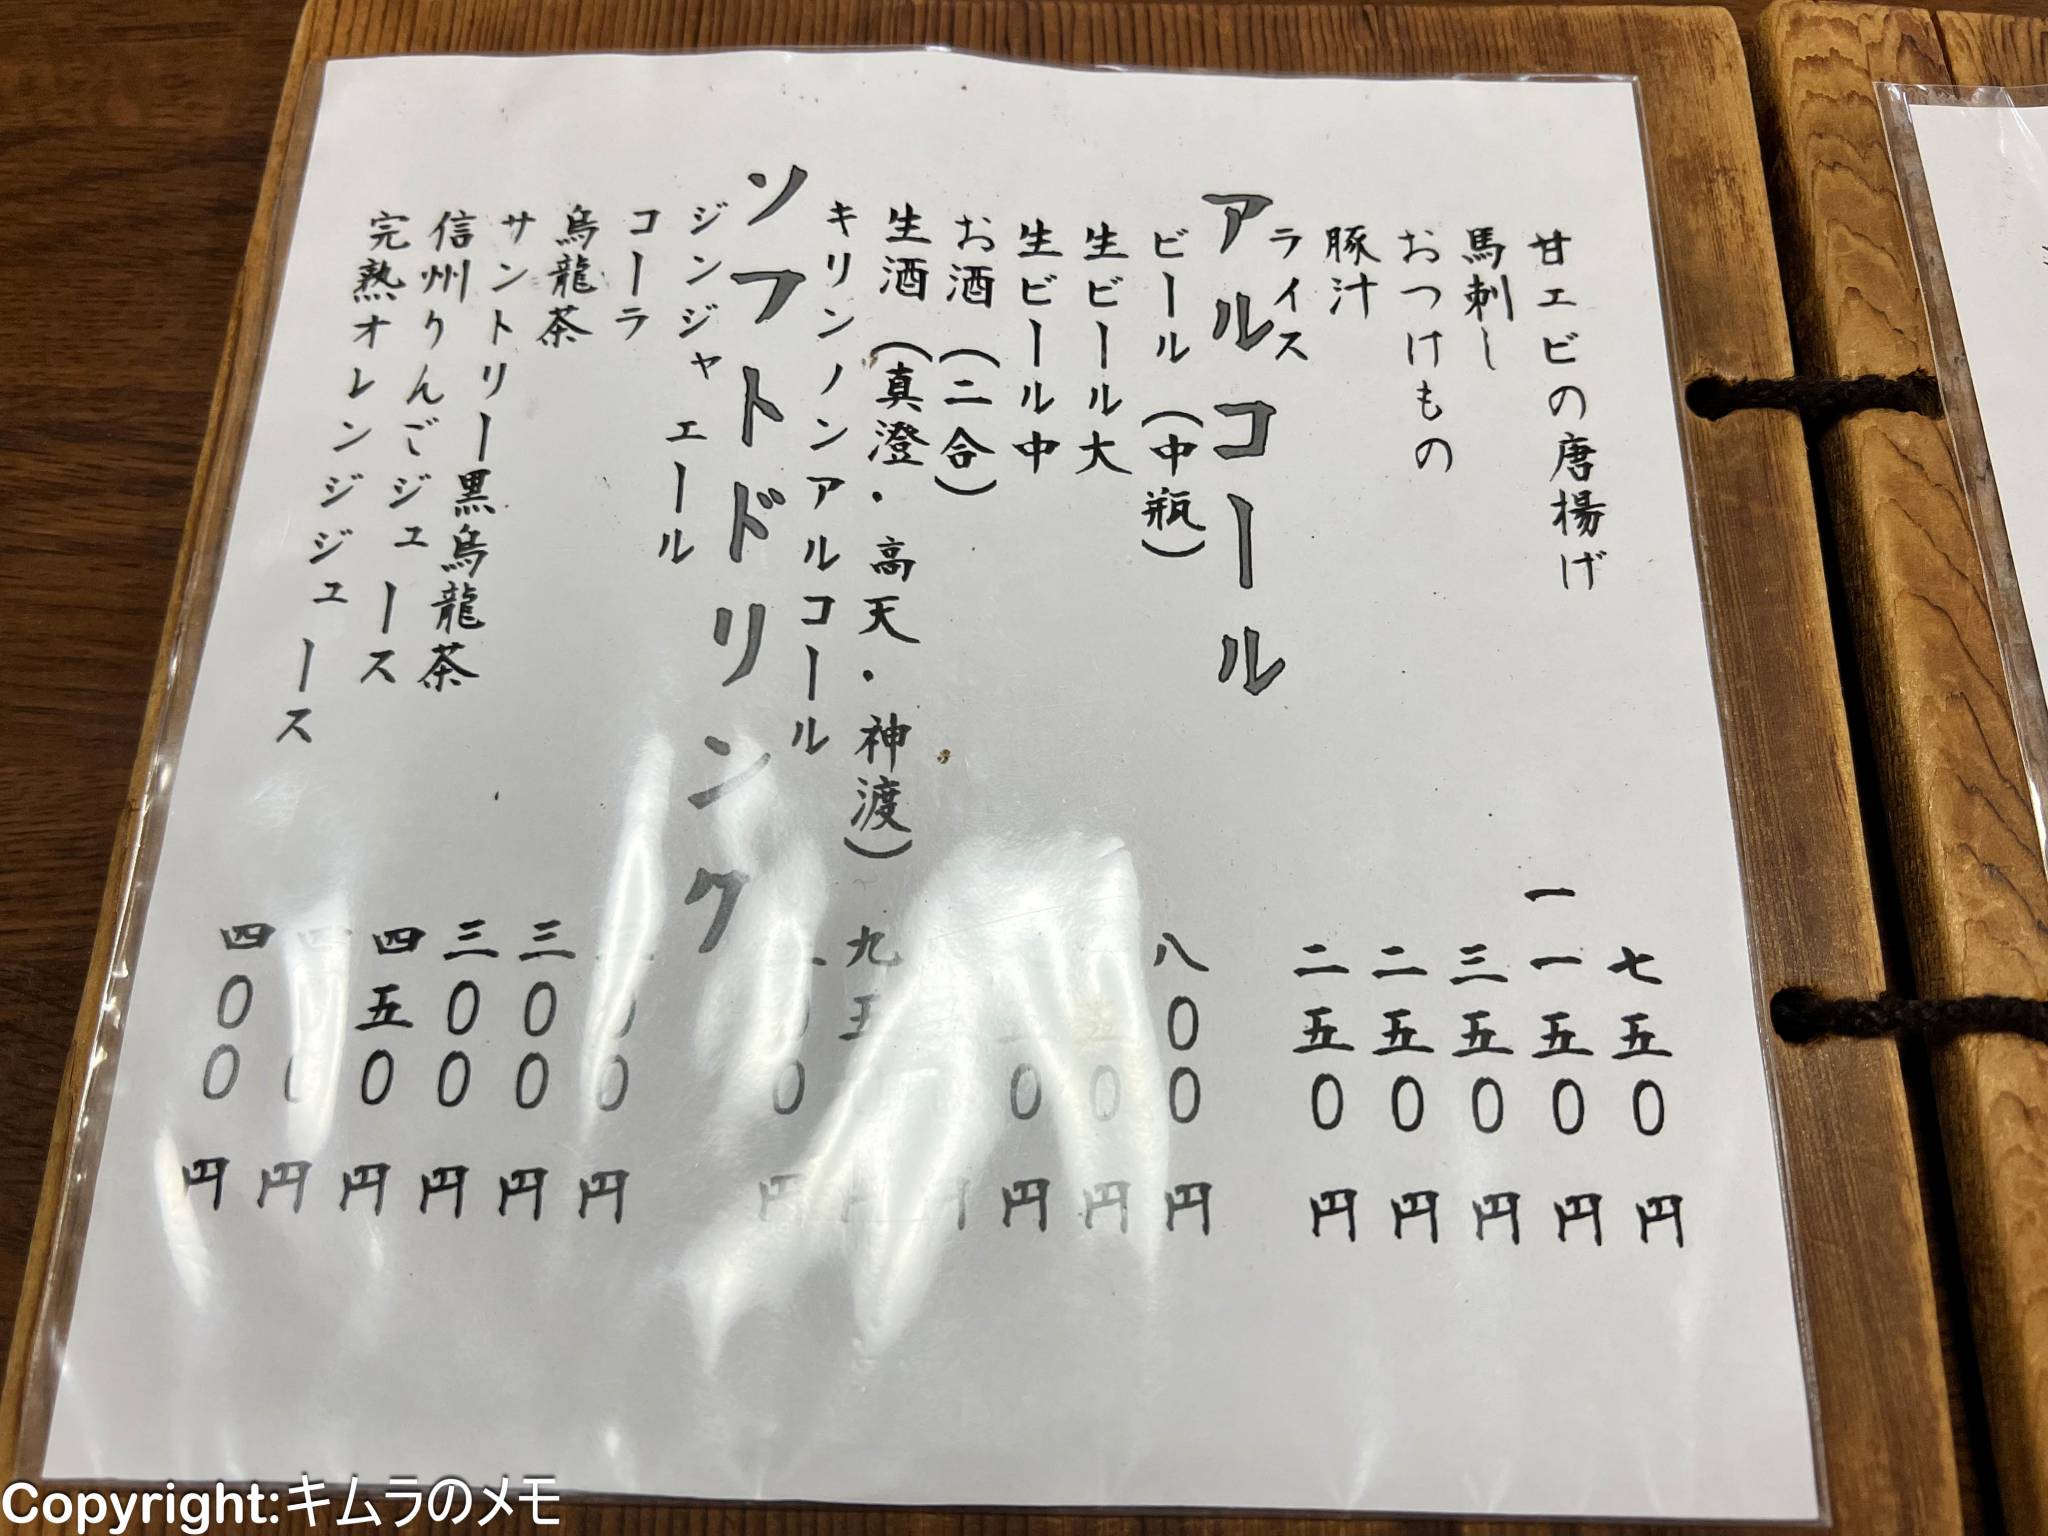 甘エビの唐揚げ 七五〇円
馬刺し 一一五〇円
おつけもの 三五〇円
豚汁 二五〇円
ライス 二五〇円
アルコール
ビール(中瓶) 八〇〇円
生ビール大 五〇円
生ビール中 〇円
お酒(二合) 円
生酒(真澄・高天・神渡) 九五 円
キリンノンアルコール 〇円
ソフトドリンク
ジンジャエール 〇円
コーラ 三〇〇円
烏龍茶 三〇〇円
サントリー黒烏龍茶 四五〇円
信州りんごジュース 円
完熟オレンジジュース 四〇〇円
Copyright:キムラのメモ